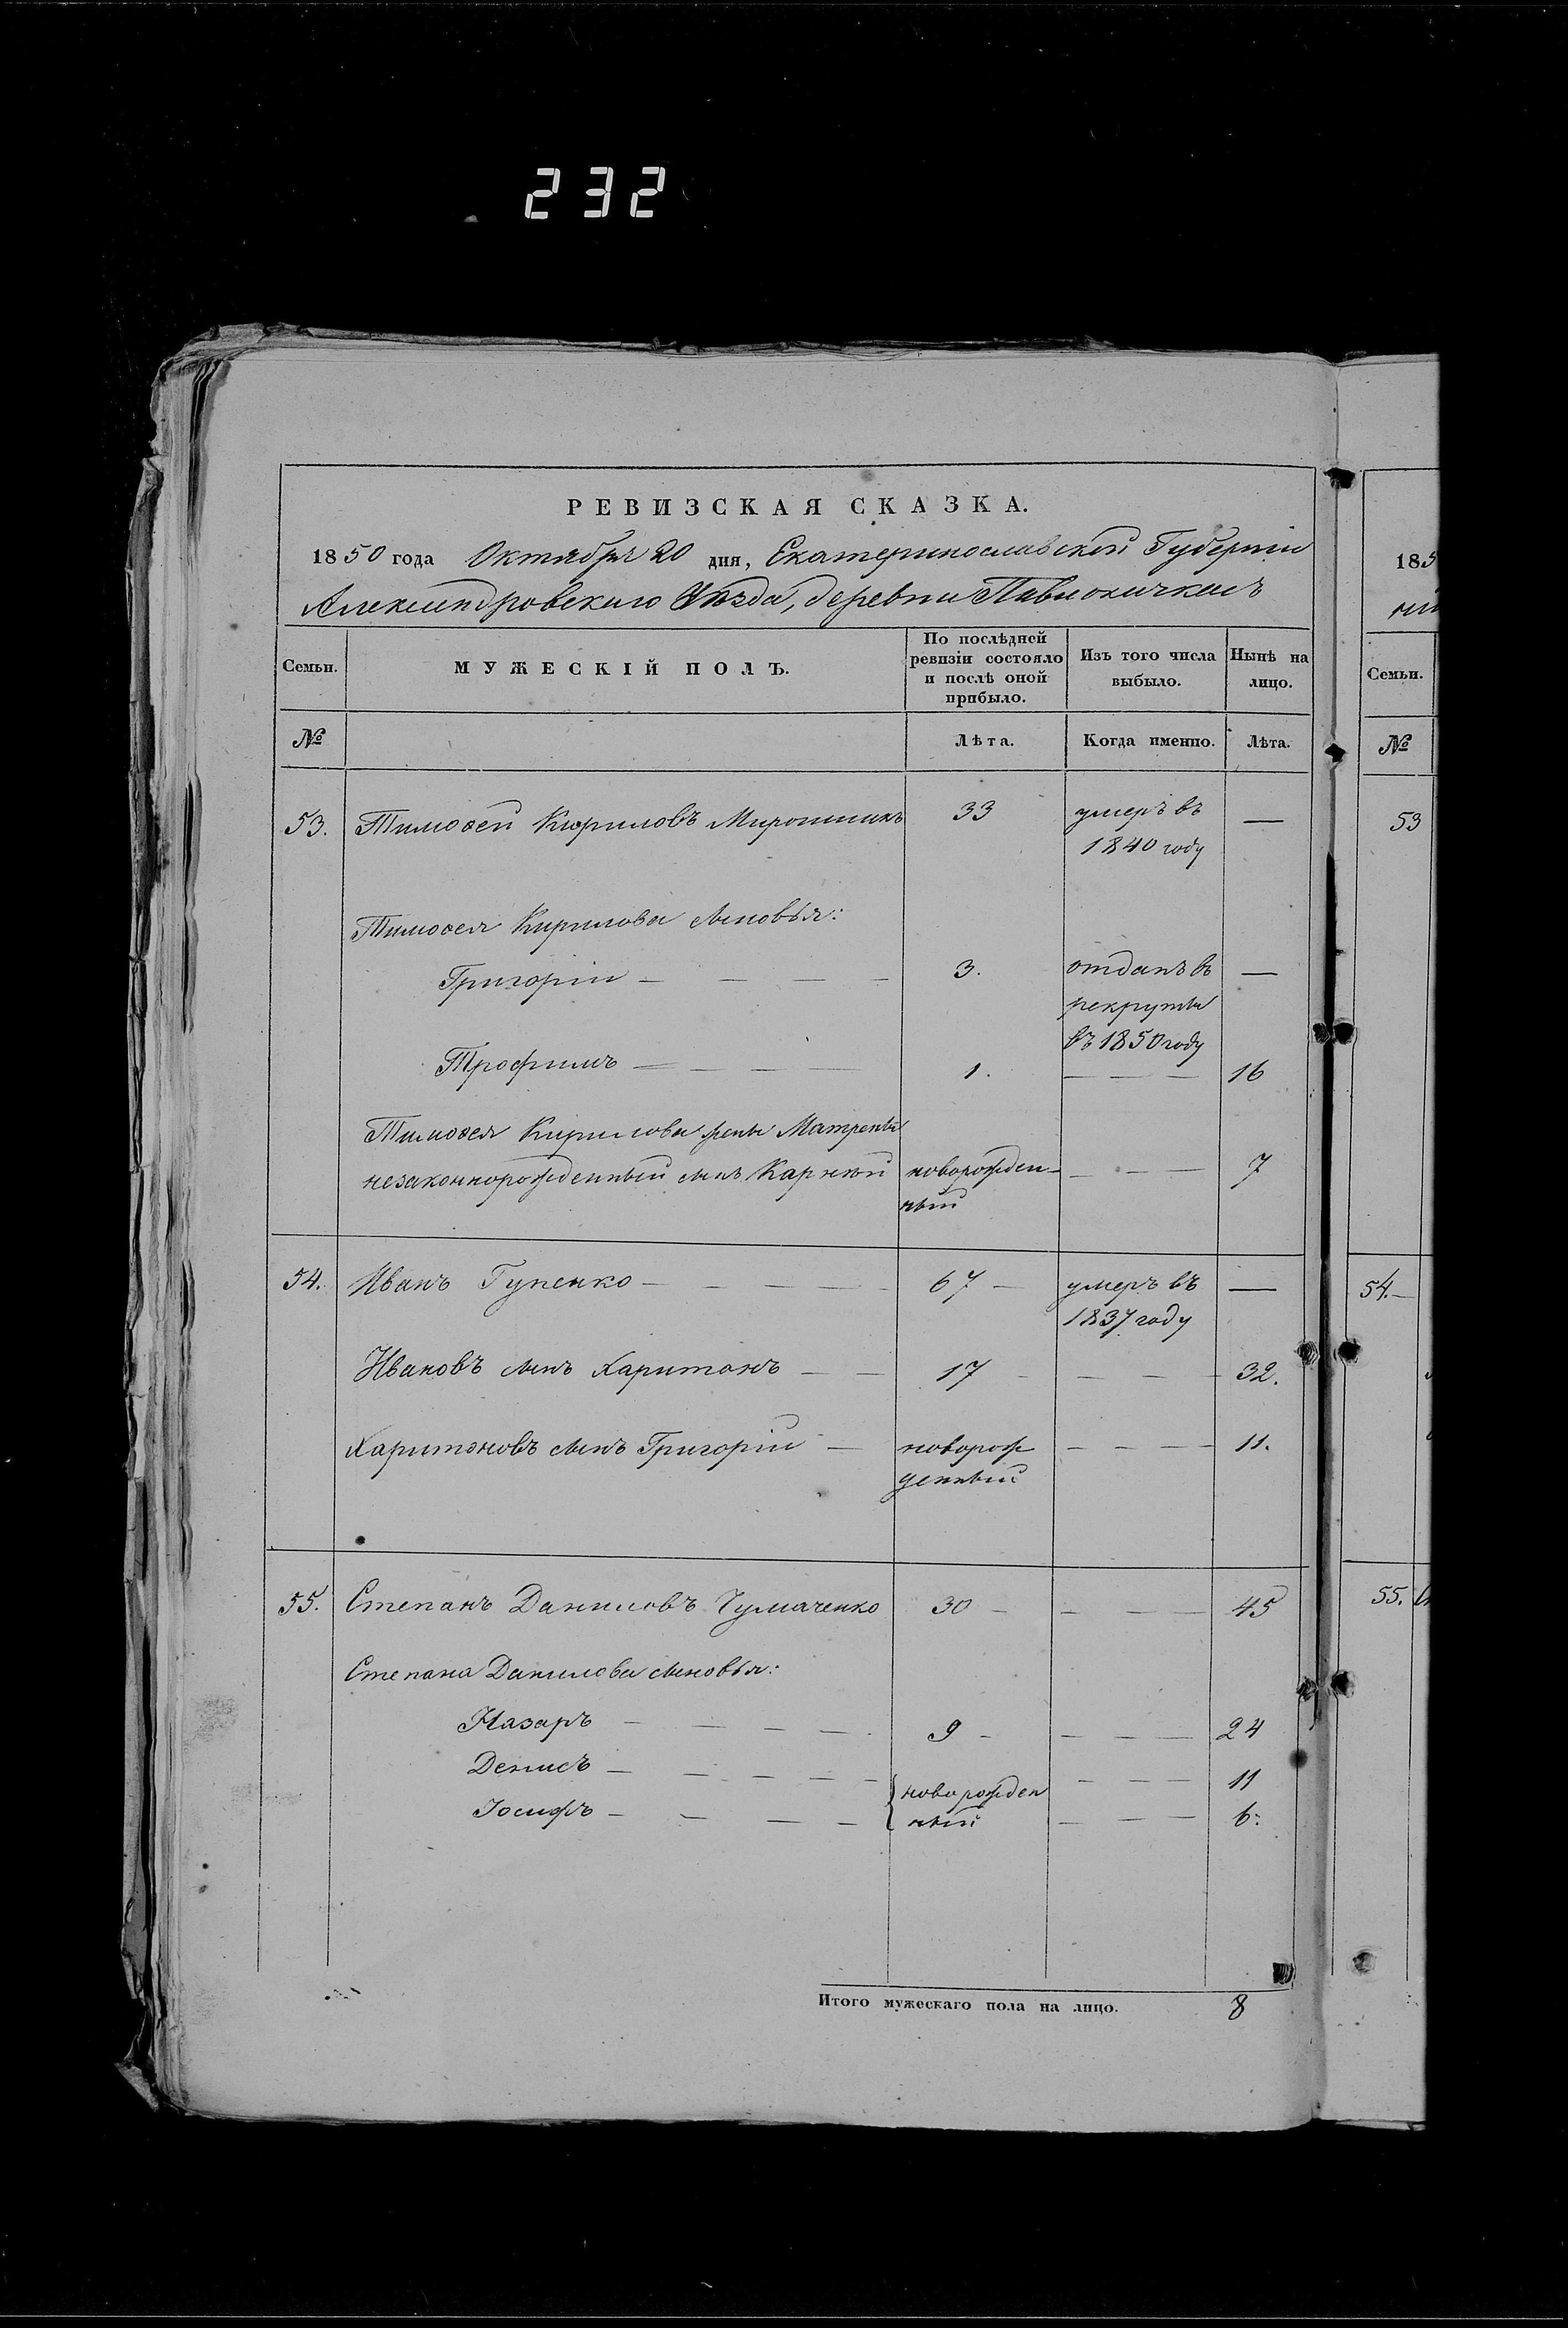 232
РЕВИЗСКАЯ СКАЗКА.
1850 года Октября 20 дня, Екатеринославской Губерніи
Александровскаго Уѣзда, деревни Павлокичкасъ
Семьи. МУЖЕСКІЙ ПОЛЪ. По послѣдней ревизіи состояло и послѣ оной прибыло. Изъ того числа выбыло. Нынѣ на лицо.
№ Лѣта. Когда именно. Лѣта.
53. Тимоѳей Кириловъ Мирошникъ 33 умеръ въ —
1840 году
Тимоѳея Кирилова сыновья:
Григорій — — — — 3. отданъ въ —
рекруты
въ 1850 году
Трофимъ — — — — 1. — — — 16
Тимоѳея Кирилова жены Матрены
незаконнорожденный сынъ Карнѣй новорожден- — — — 7
ный
54. Иванъ Гупенко — — — — 67 — умеръ въ —
1837 году
Ивановъ сынъ Харитонъ — — 17 — — — 32.
Харитоновъ сынъ Григорій — новорож — — — 11.
денный
55. Степанъ Даниловъ Чумаченко 30 — — — 45
Степана Данилова сыновья:
Назаръ — — — — 9 — — — — 24
Денисъ — — — — — — — — 11
новорожден
Іосифъ — — — — ный — — — 6.
Итого мужескаго пола на лицо. 8
185
Семьи.
№
53
54.—
55.